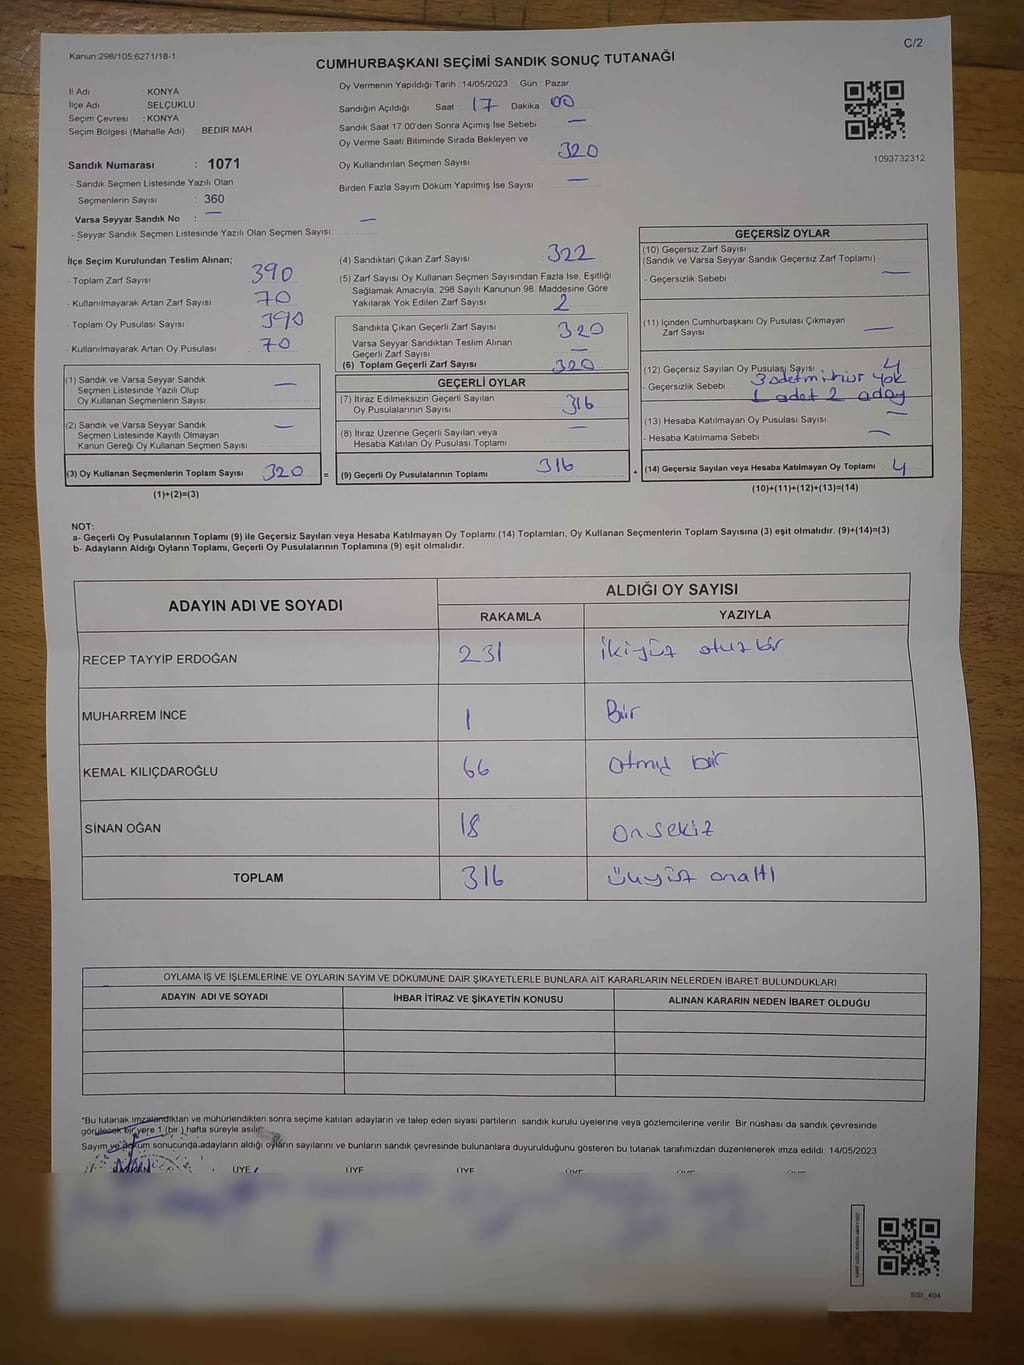 Kanun:298/105:6271/18-1
C/2
CUMHURBAŞKANI SEÇİMİ SANDIK SONUÇ TUTANAĞI
İl Adı : KONYA
İlçe Adı SELÇUKLU
Seçim Çevresi : KONYA
Seçim Bölgesi (Mahalle Adı) : BEDIR MAH
Sandık Numarası : 1071
- Sandık Seçmen Listesinde Yazılı Olan
Seçmenlerin Sayısı : 360
Varsa Seyyar Sandık No : —
- Seyyar Sandık Seçmen Listesinde Yazılı Olan Seçmen Sayısı: —
Oy Vermenin Yapıldığı Tarih : 14/05/2023 Gün Pazar
Sandığın Açıldığı Saat 17 Dakika 00
Sandık Saat 17:00'den Sonra Açımış İse Sebebi —
Oy Verme Saati Bitiminde Sırada Bekleyen ve
Oy Kullandırılan Seçmen Sayısı 320
Birden Fazla Sayım Döküm Yapılmış İse Sayısı —
1093732312
İlçe Seçim Kurulundan Teslim Alınan;
- Toplam Zarf Sayısı 390
- Kullanılmayarak Artan Zarf Sayısı 70
- Toplam Oy Pusulası Sayısı 390
- Kullanılmayarak Artan Oy Pusulası 70
(1) Sandık ve Varsa Seyyar Sandık
Seçmen Listesinde Yazılı Olup
Oy Kullanan Seçmenlerin Sayısı —
(2) Sandık ve Varsa Seyyar Sandık
Seçmen Listesinde Kayıtlı Olmayan
Kanun Gereği Oy Kullanan Seçmen Sayısı —
(3) Oy Kullanan Seçmenlerin Toplam Sayısı 320 =
(1)+(2)=(3)
(4) Sandıktan Çıkan Zarf Sayısı 322
(5) Zarf Sayısı Oy Kullanan Seçmen Sayısından Fazla İse, Eşitliği
Sağlamak Amacıyla, 298 Sayılı Kanunun 98. Maddesine Göre
Yakılarak Yok Edilen Zarf Sayısı 2
Sandıkta Çıkan Geçerli Zarf Sayısı 320
Varsa Seyyar Sandıktan Teslim Alınan
Geçerli Zarf Sayısı —
(6) Toplam Geçerli Zarf Sayısı 320
GEÇERLİ OYLAR
(7) İtiraz Edilmeksizin Geçerli Sayılan
Oy Pusulalarının Sayısı 316
(8) İtiraz Üzerine Geçerli Sayılan veya
Hesaba Katılan Oy Pusulası Toplamı —
(9) Geçerli Oy Pusulalarının Toplamı 316 +
GEÇERSİZ OYLAR
(10) Geçersiz Zarf Sayısı
(Sandık ve Varsa Seyyar Sandık Geçersiz Zarf Toplamı)
- Geçersizlik Sebebi —
(11) İçinden Cumhurbaşkanı Oy Pusulası Çıkmayan
Zarf Sayısı —
(12) Geçersiz Sayılan Oy Pusulası Sayısı 4
- Geçersizlik Sebebi 3 adet mühür yok
1 adet 2 aday
(13) Hesaba Katılmayan Oy Pusulası Sayısı —
- Hesaba Katılmama Sebebi —
(14) Geçersiz Sayılan veya Hesaba Katılmayan Oy Toplamı 4
(10)+(11)+(12)+(13)=(14)
NOT:
a- Geçerli Oy Pusulalarının Toplamı (9) ile Geçersiz Sayılan veya Hesaba Katılmayan Oy Toplamı (14) Toplamları, Oy Kullanan Seçmenlerin Toplam Sayısına (3) eşit olmalıdır. (9)+(14)=(3)
b- Adayların Aldığı Oyların Toplamı, Geçerli Oy Pusulalarının Toplamına (9) eşit olmalıdır.
ADAYIN ADI VE SOYADI
ALDIĞI OY SAYISI
RAKAMLA YAZIYLA
RECEP TAYYİP ERDOĞAN 231 ikiyüz otuz bir
MUHARREM İNCE 1 Bir
KEMAL KILIÇDAROĞLU 66 atmış bir
SİNAN OĞAN 18 onsekiz
TOPLAM 316 üçyüz onaltı
OYLAMA İŞ VE İŞLEMLERİNE VE OYLARIN SAYIM VE DÖKÜMÜNE DAİR ŞİKAYETLERLE BUNLARA AİT KARARLARIN NELERDEN İBARET BULUNDUKLARI
ADAYIN ADI VE SOYADI İHBAR İTİRAZ VE ŞİKAYETİN KONUSU ALINAN KARARIN NEDEN İBARET OLDUĞU
*Bu tutanak imzalandıktan ve mühürlendikten sonra seçime katılan adayların ve talep eden siyasi partilerin sandık kurulu üyelerine veya gözlemcilerine verilir. Bir nüshası da sandık çevresinde
görülecek bir yere 1 (bir ) hafta süreyle asılır.
Sayım ve döküm sonucunda adayların aldığı oyların sayılarını ve bunların sandık çevresinde bulunanlara duyurulduğunu gösteren bu tutanak tarafımızdan düzenlenerek imza edildi. 14/05/2023
BAŞKAN ÜYE ÜYE ÜYE ÜYE ÜYE ÜYE